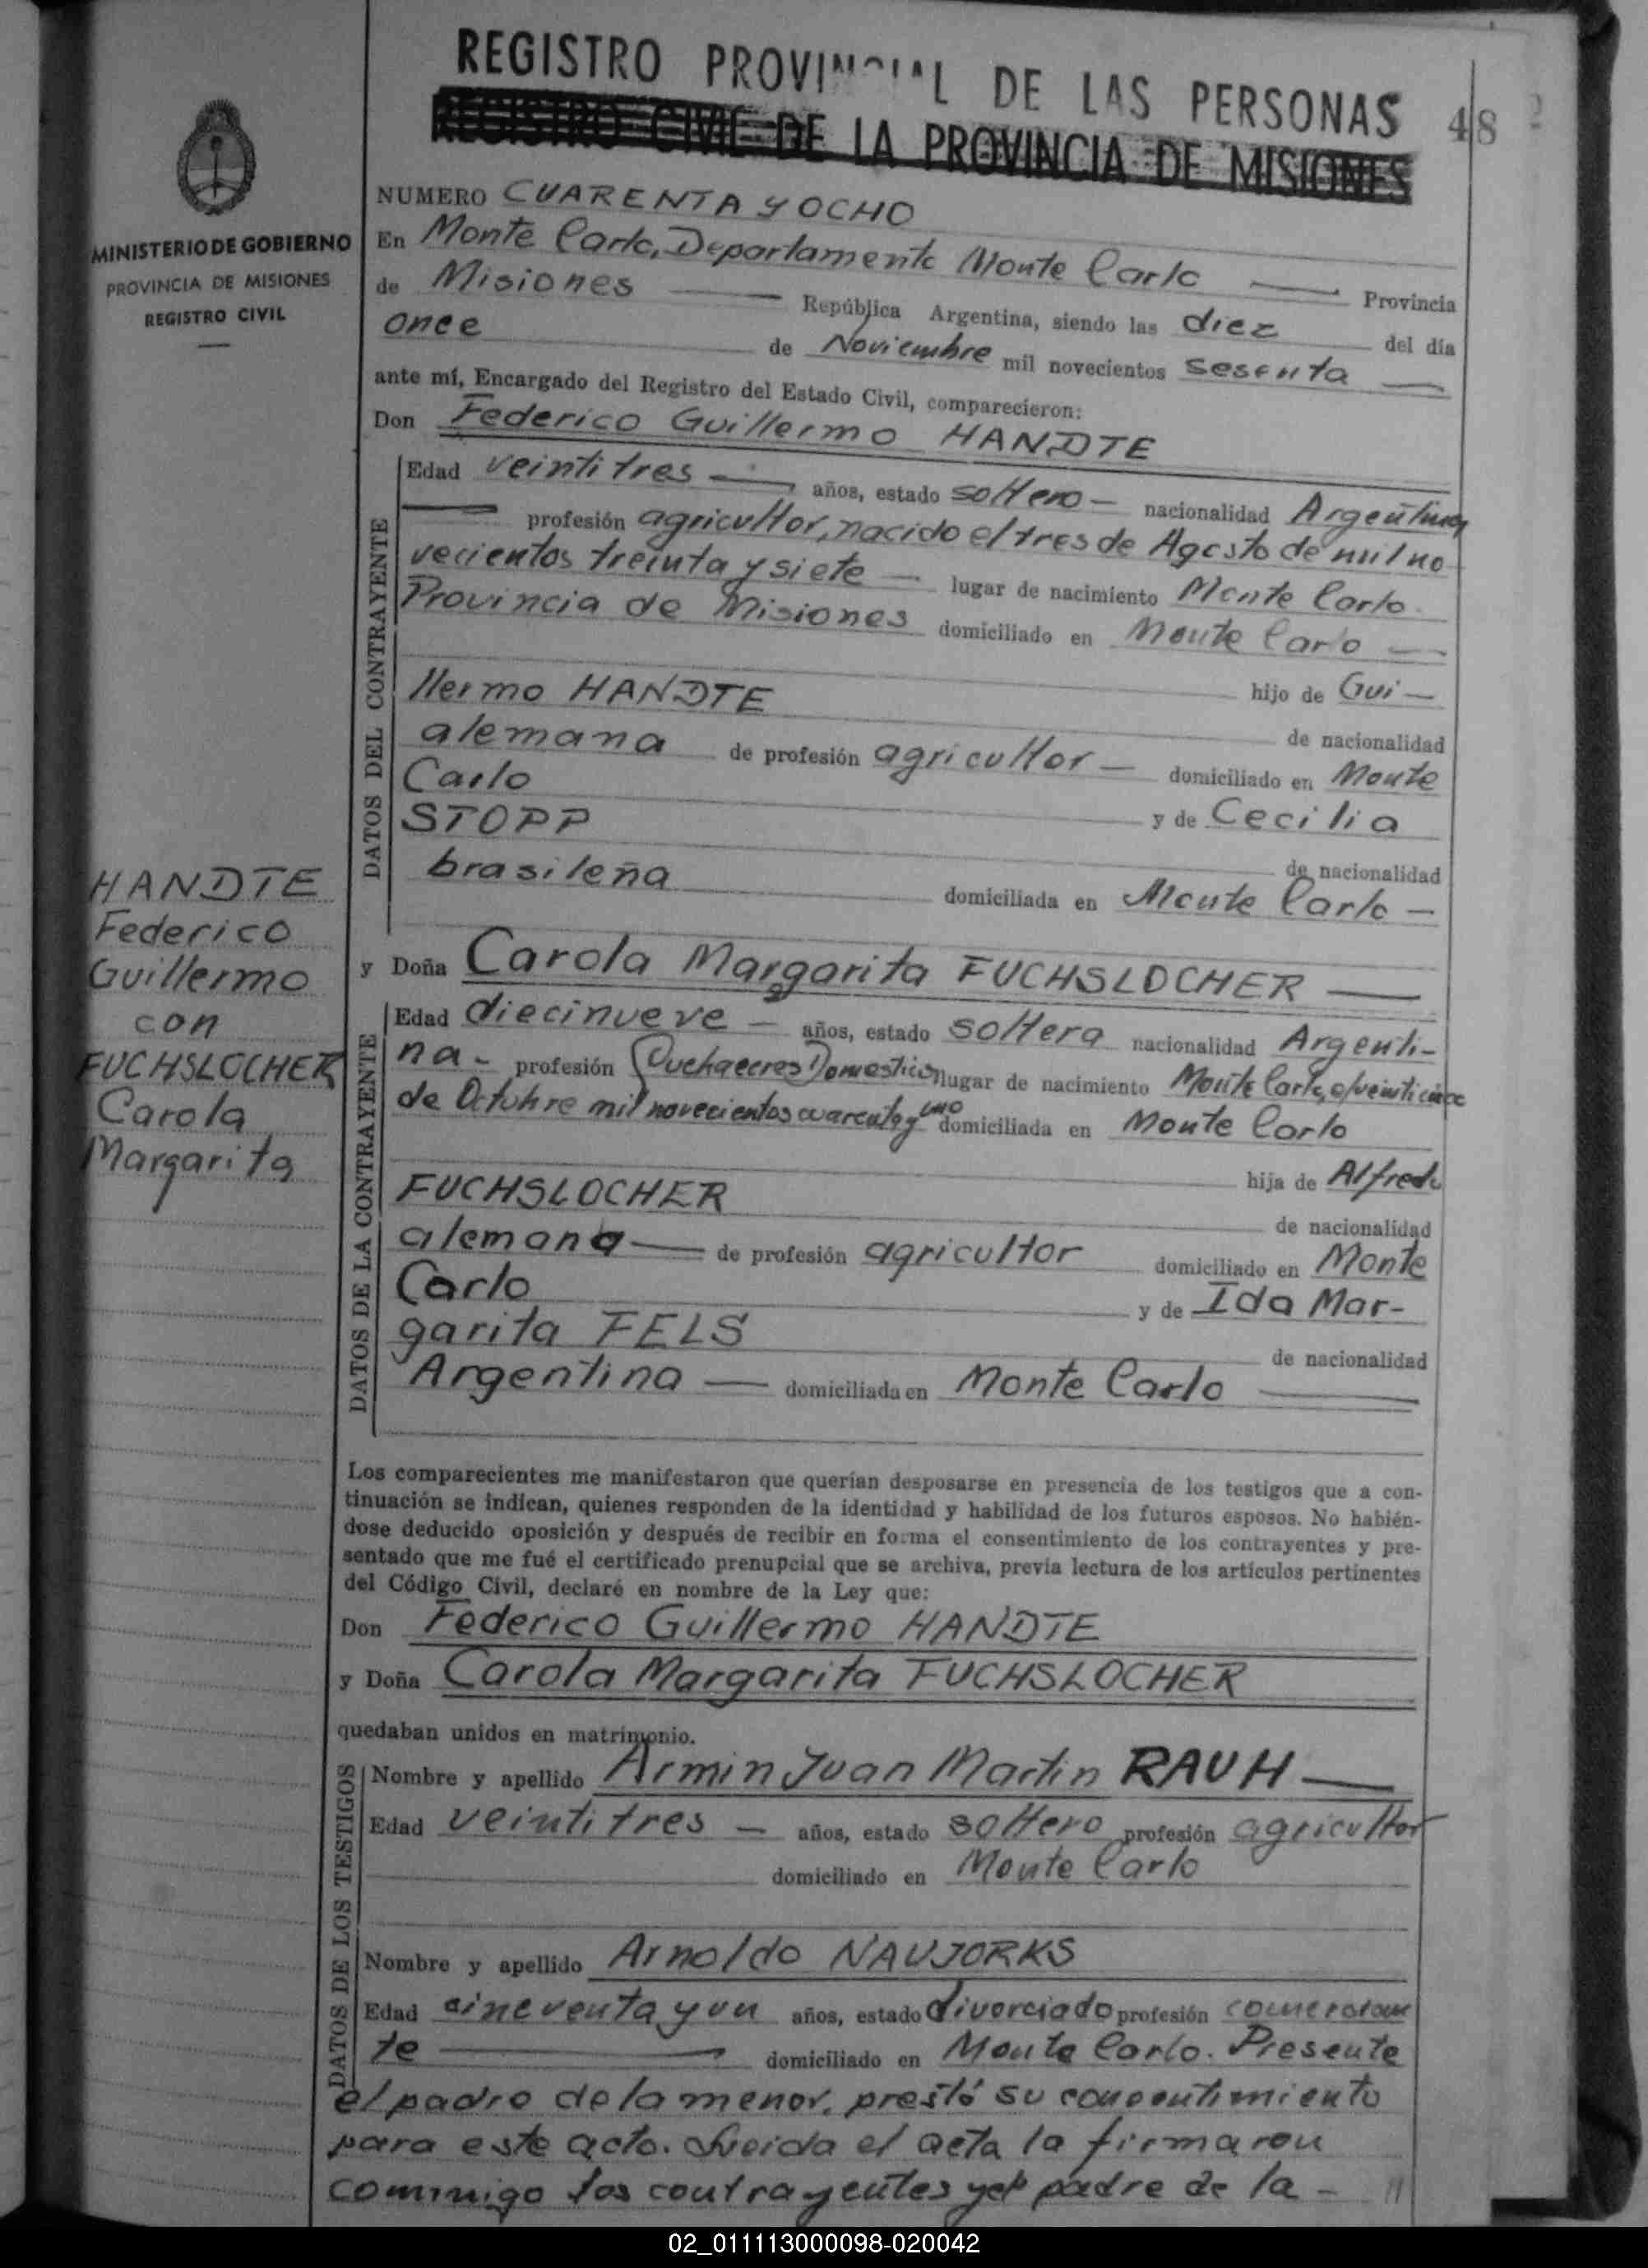 REGISTRO PROVINCIAL DE LAS PERSONAS
48
REGISTRO CIVIL DE LA PROVINCIA DE MISIONES
MINISTERIO DE GOBIERNO
PROVINCIA DE MISIONES
REGISTRO CIVIL
NUMERO CUARENTA Y OCHO
En Monte Carlo, Departamento Monte Carlo — Provincia
de Misiones — República Argentina, siendo las diez del día
once de Noviembre mil novecientos sesenta —
ante mí, Encargado del Registro del Estado Civil, comparecieron:
Don Federico Guillermo HANDTE
DATOS DEL CONTRAYENTE
Edad veintitres — años, estado soltero — nacionalidad Argentina
— profesión agricultor, nacido el tres de Agosto de mil no
vecientos treinta y siete — lugar de nacimiento Monte Carlo.
Provincia de Misiones domiciliado en Monte Carlo —
hijo de Gui —
llermo HANDTE
de nacionalidad
alemana de profesión agricultor — domiciliado en Monte
Carlo y de Cecilia
STOPP
de nacionalidad
brasileña domiciliada en Monte Carlo —
HANDTE
Federico
Guillermo
con
FUCHSLOCHER
Carola
Margarita
y Doña Carola Margarita FUCHSLOCHER —
DATOS DE LA CONTRAYENTE
Edad diecinueve — años, estado soltera nacionalidad Argenti-
na - profesión Quehaceres Domesticos lugar de nacimiento Monte Carlo, el veinticinco
de Octubre mil novecientos cuarenta y uno domiciliada en Monte Carlo
hija de Alfredo
FUCHSLOCHER
de nacionalidad
alemana — de profesión agricultor domiciliado en Monte
Carlo y de Ida Mar-
garita FELS
de nacionalidad
Argentina — domiciliada en Monte Carlo —
Los comparecientes me manifestaron que querían desposarse en presencia de los testigos que a con-
tinuación se indican, quienes responden de la identidad y habilidad de los futuros esposos. No habién-
dose deducido oposición y después de recibir en forma el consentimiento de los contrayentes y pre-
sentado que me fué el certificado prenupcial que se archiva, previa lectura de los artículos pertinentes
del Código Civil, declaré en nombre de la Ley que:
Don Federico Guillermo HANDTE
y Doña Carola Margarita FUCHSLOCHER
quedaban unidos en matrimonio.
DATOS DE LOS TESTIGOS
Nombre y apellido Armin Juan Martin RAUH —
Edad veintitres — años, estado soltero profesión agricultor
domiciliado en Monte Carlo
Nombre y apellido Arnoldo NAUJORKS
Edad cincuenta y un años, estado divorciado profesión comercian
te — domiciliado en Monte Carlo. Presente
el padre de la menor, prestó su consentimiento
para este acto. Leida el acta la firmaron
conmigo los contrayentes y el padre de la - //
02_011113000098-020042